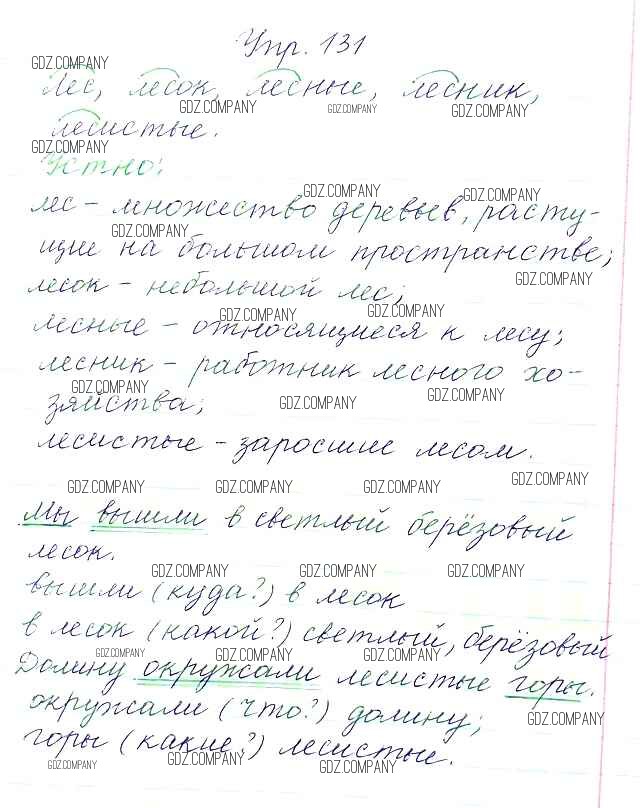 Упр. 131
GDZ.COMPANY
Лес, лесок, лесные, лесник,
GDZ.COMPANY GDZ.COMPANY GDZ.COMPANY
лесистые.
GDZ.COMPANY
Устно:
GDZ.COMPANY GDZ.COMPANY
лес – множество деревьев, расту-
GDZ.COMPANY
щие на большом пространстве;
GDZ.COMPANY
лесок – небольшой лес;
GDZ.COMPANY GDZ.COMPANY
лесные – относящиеся к лесу;
лесник – работник лесного хо-
GDZ.COMPANY GDZ.COMPANY GDZ.COMPANY
зяйства;
лесистые – заросшие лесом.
GDZ.COMPANY GDZ.COMPANY GDZ.COMPANY GDZ.COMPANY
Мы вышли в светлый берёзовый
лесок.
GDZ.COMPANY GDZ.COMPANY GDZ.COMPANY
вышли (куда?) в лесок
в лесок (какой?) светлый, берёзовый
GDZ.COMPANY GDZ.COMPANY GDZ.COMPANY
Долину окружали лесистые горы.
окружали (что?) долину;
GDZ.COMPANY
горы (какие?) лесистые.
GDZ.COMPANY GDZ.COMPANY GDZ.COMPANY